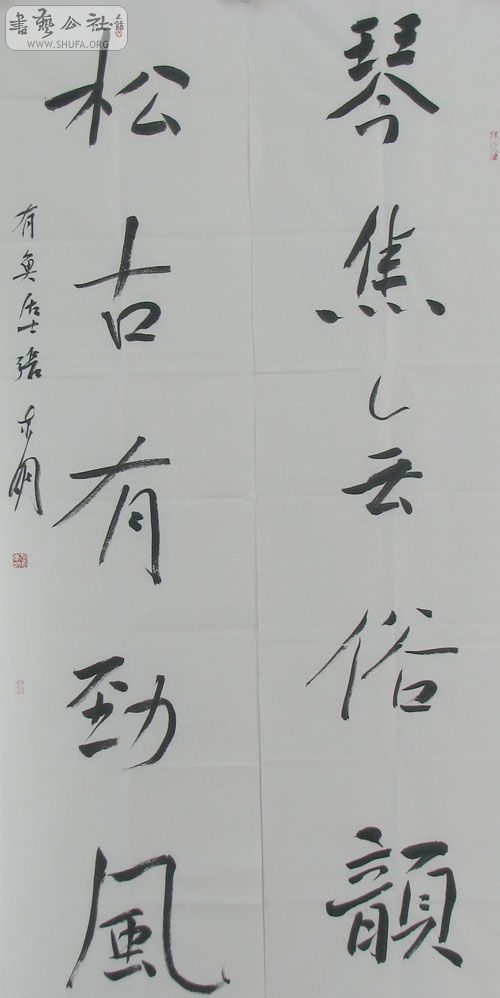 書藝公社
WWW.SHUFA.ORG
琴焦無俗韻
松古有勁風
有居士張東明